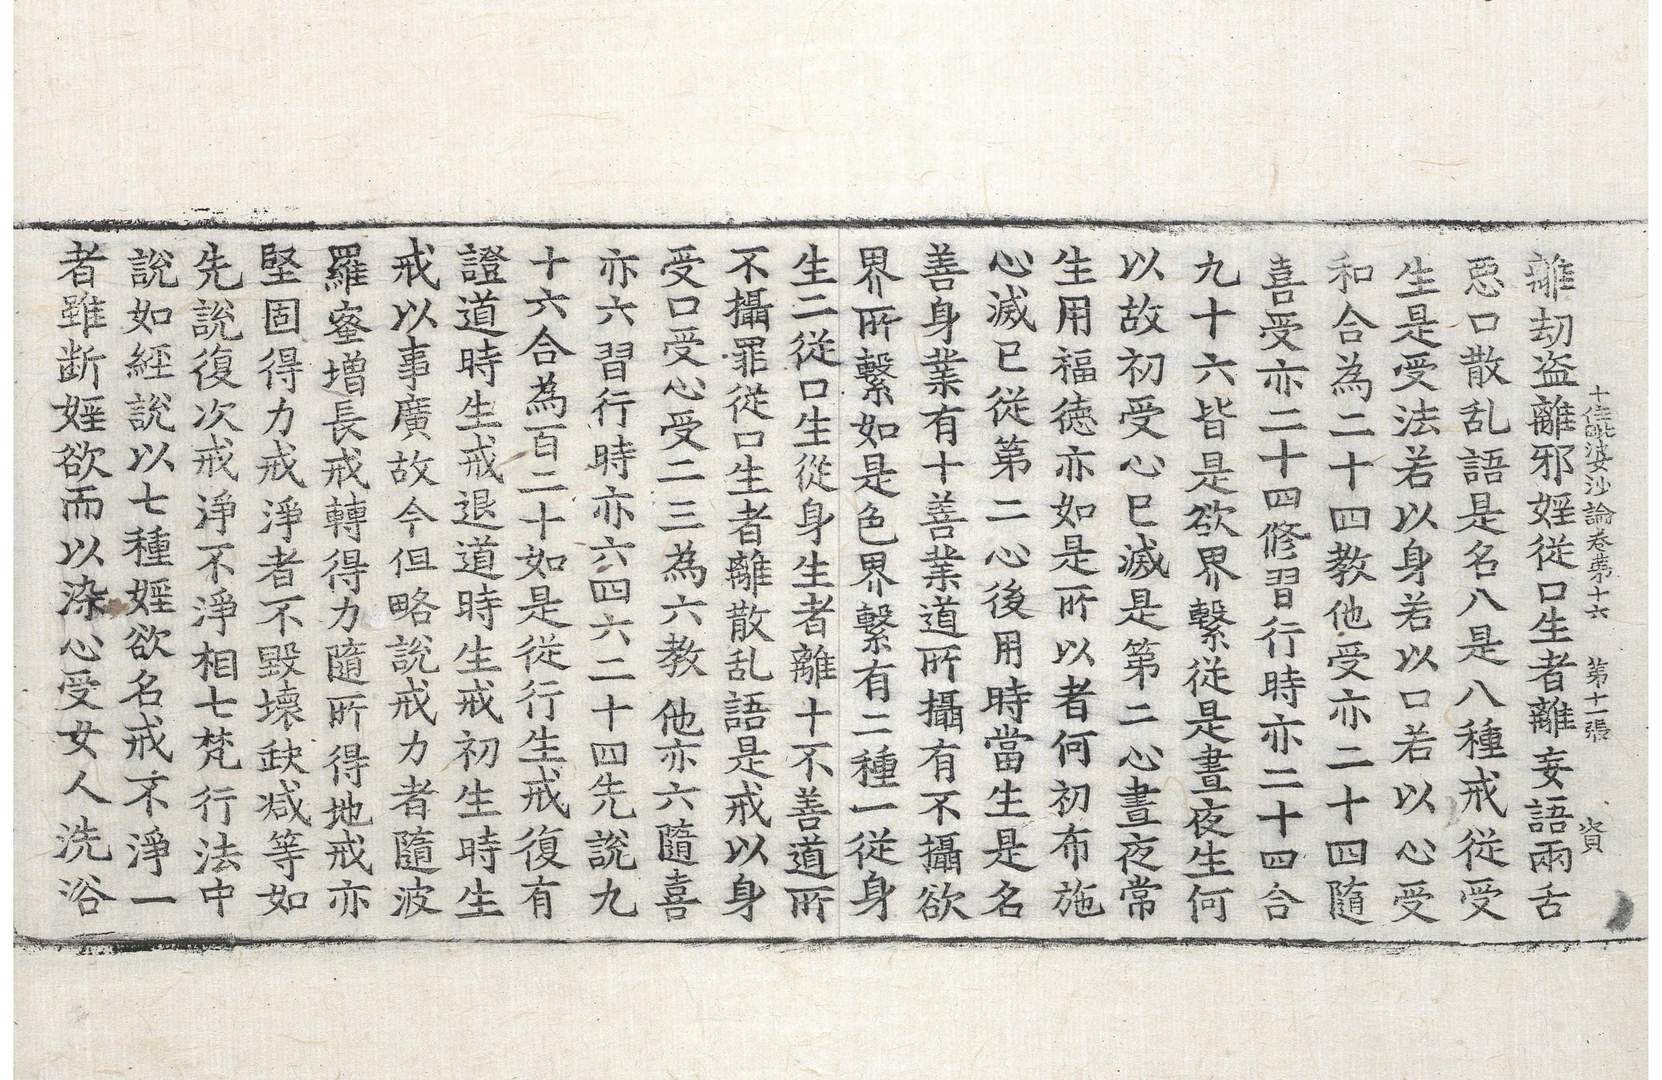 十住毗婆沙論卷第十六　第十一張　資
離劫盜離邪婬從口生者離妄語兩舌
惡口散乱語是名八是八種戒從受
生是受法若以身若以口若以心受
和合為二十四教他受亦二十四隨
喜受亦二十四修習行時亦二十四合
九十六皆是欲界繫從是晝夜生何
以故初受心已滅是第二心晝夜常
生用福德亦如是所以者何初布施
心滅已從第二心後用時當生是名
善身業有十善業道所攝有不攝欲
界所繫如是色界繫有二種一從身
生二從口生從身生者離十不善道所
不攝罪從口生者離散乱語是戒以身
受口受心受二三為六教他亦六隨喜
亦六習行時亦六四六二十四先說九
十六合為百二十如是從行生戒復有
證道時生戒退道時生戒初生時生
戒以事廣故今但略說戒力者隨波
羅蜜增長戒轉得力隨所得地戒亦
堅固得力戒淨者不毀壞缺減等如
先說復次戒淨不淨相七梵行法中
說如經說以七種婬欲名戒不淨一
者雖斷婬欲而以染心受女人洗浴